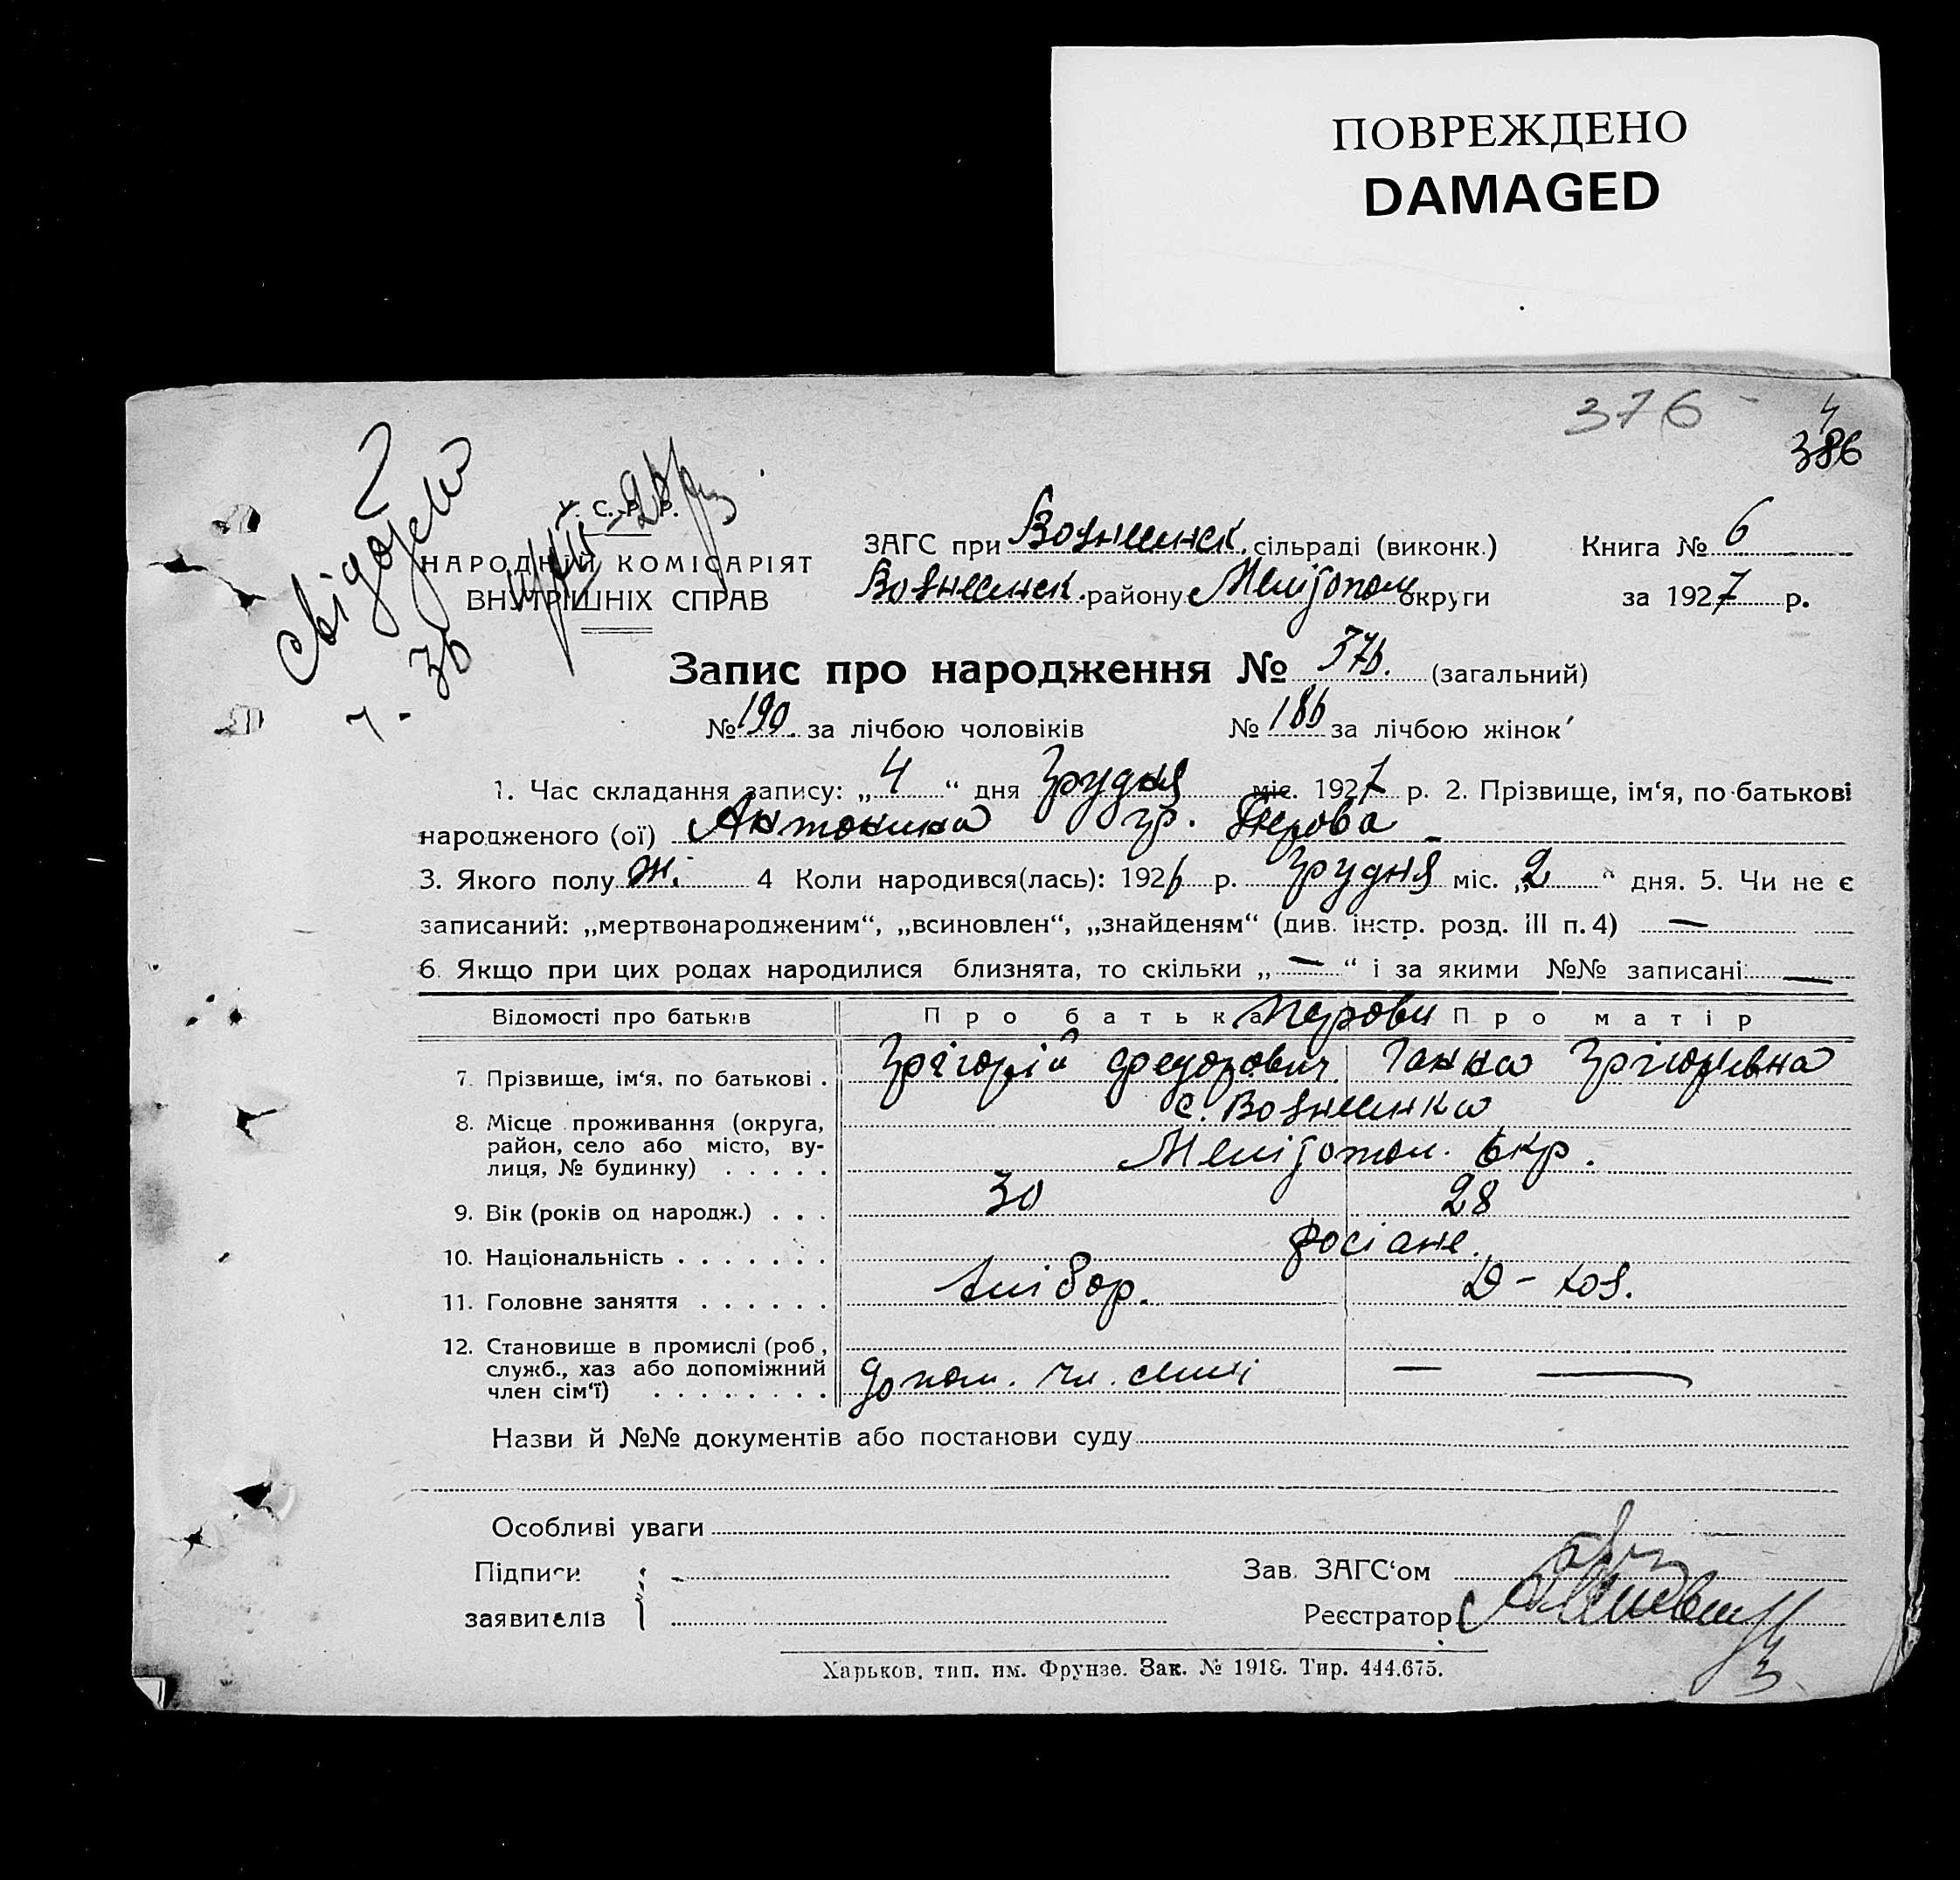 ПОВРЕЖДЕНО
DAMAGED
376
4
386
У. С. Р. Р.
НАРОДНІЙ КОМІСАРІЯТ
ВНУТРІШНІХ СПРАВ
ЗАГС при Вознесенск. сільраді (виконк.) Книга № 6
Вознесенск. району Меліτопол округи за 1927 р.
Запис про народження № 376. (загальний)
№ 190. за лічбою чоловіків № 186 за лічбою жінок
1. Час складання запису: „4“ дня Грудня міс. 1927 р. 2. Прізвище, ім‘я, по-батькові
народженого (ої) Антонина гр. Перова
3. Якого полу ж. 4 Коли народився(лась): 1926 р. Грудня міс. „2“ дня. 5. Чи не є
записаний: „мертвонародженим“, „всиновлен“, „знайденям“ (див. інстр. розд. III п. 4) —
6. Якщо при цих родах народилися близнята, то скільки „—“ і за якими №№ записані: —
Відомості про батьків Про батька Перови Про матір
7. Прізвище, ім‘я, по батькові . Грігорій Федорович Ганна Грігорьевна
8. Місце проживання (округа, с. Вознесенка
район, село або місто, ву-
лиця, № будинку) . . . . . Мелітопол. Окр.
9. Вік (років од народж.) . . . 30 28
10. Національність . . . . . . . росіане.
11. Головне заняття . . . . . . хлібор. д-хоз.
12. Становище в промислі (роб.,
служб., хаз або допоміжний
член сім‘ї) . . . . . . . . допом. чл. семьі — —
Назви й №№ документів або постанови суду
Особливі уваги
Підписи
заявителів
Зав. ЗАГС‘ом
Реєстратор
Харьков, тип. им. Фрунзе. Зак. № 1918. Тир. 444.675.